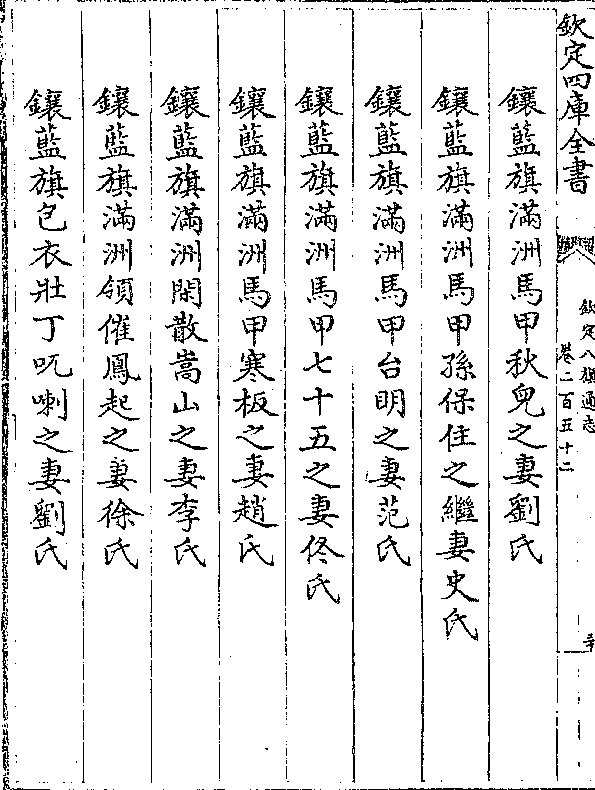 欽定四庫全書
欽定八旗通志
卷二百五十二
鑲藍旗滿洲馬甲秋兒之妻劉氏
鑲藍旗滿洲馬甲孫保住之繼妻史氏
鑲藍旗滿洲馬甲台明之妻范氏
鑲藍旗滿洲馬甲七十五之妻佟氏
鑲藍旗滿洲馬甲寒板之妻趙氏
鑲藍旗滿洲閑散嵩山之妻李氏
鑲藍旗滿洲領催鳳起之妻徐氏
鑲藍旗包衣壯丁呪喇之妻劉氏